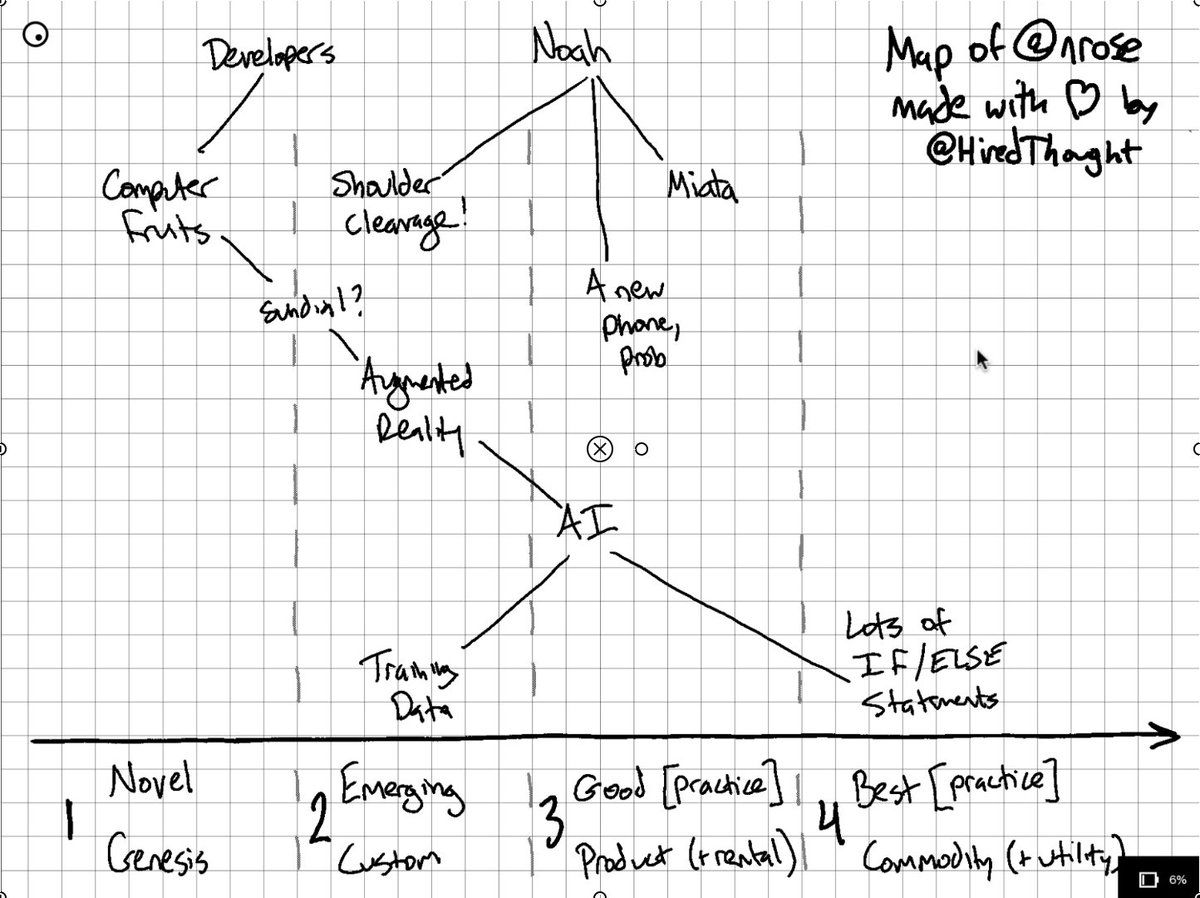 Developers
Noah
Map of @nrose
made with ♡ by
@HiredThought
Computer
Fruits
Shoulder
Cleavage!
Miata
Sundial?
A new
phone,
prob
Augmented
Reality
AI
Training
Data
Lots of
IF/ELSE
Statements
1
Novel
Genesis
2
Emerging
Custom
3
Good [practice]
Product (+rental)
4
Best [practice]
Commodity (+utility)
6%